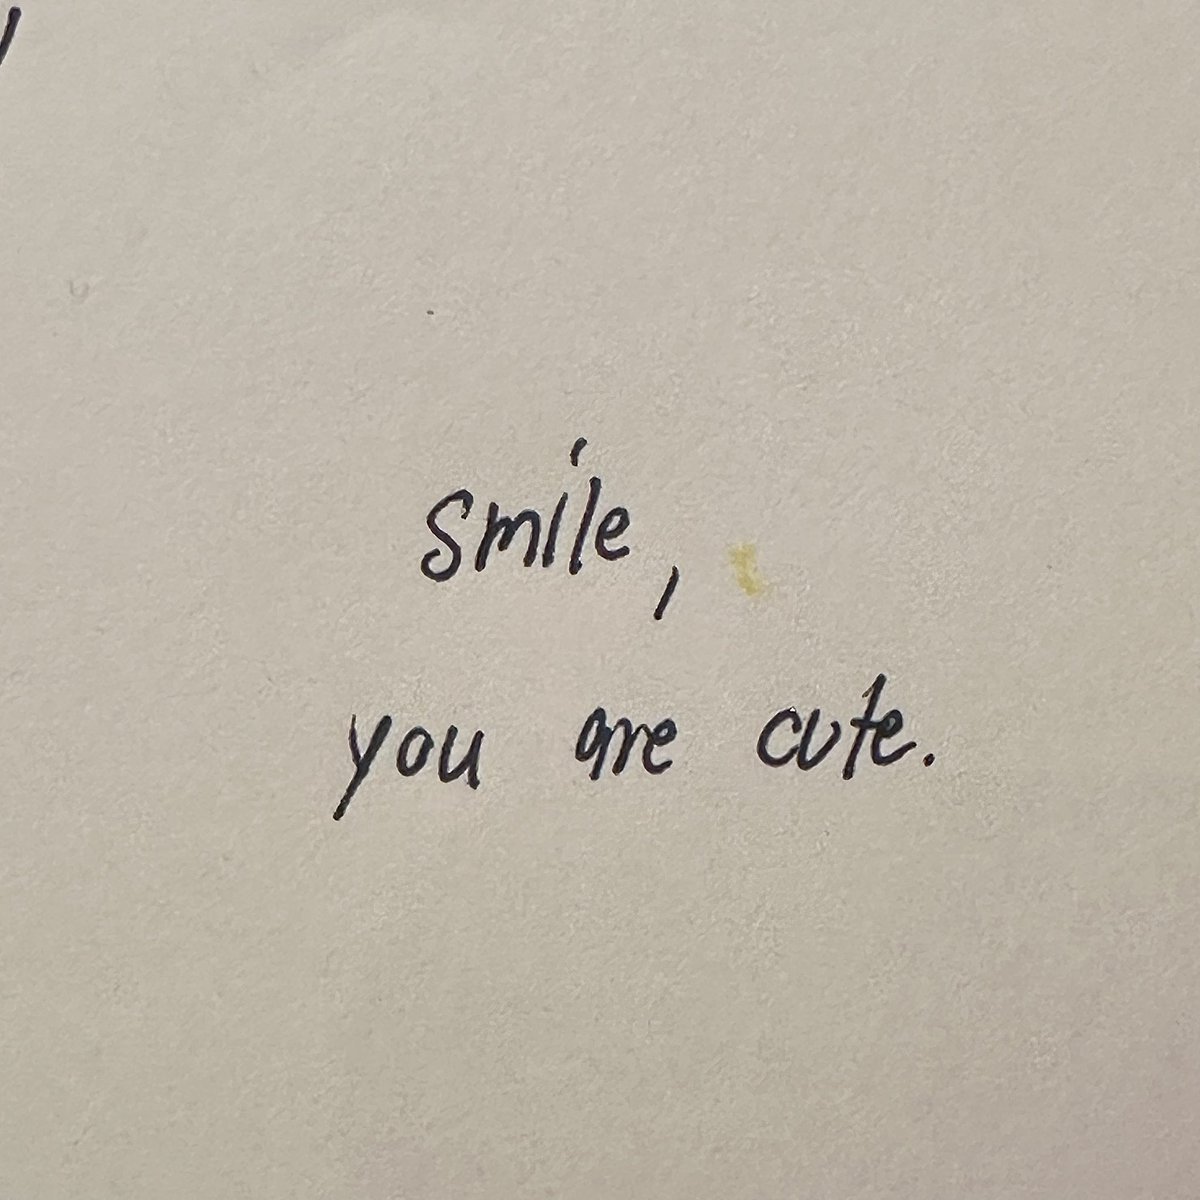 smile,
you are cute.